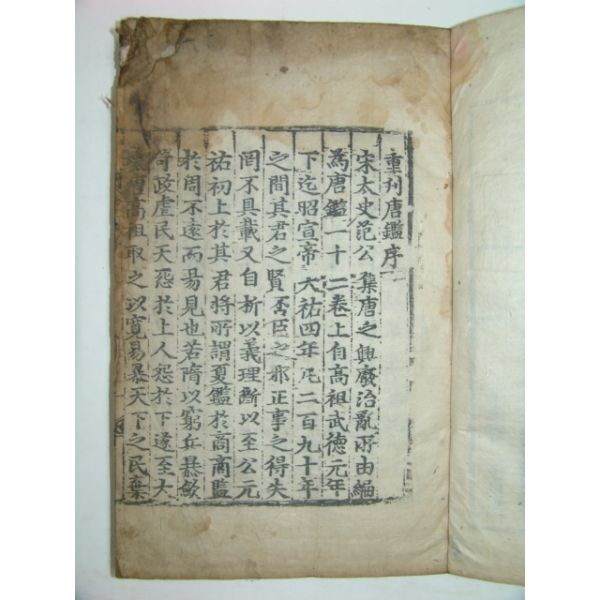 重刊唐鑑序
宋太史范公集唐之興廢治亂所由編
為唐鑑一十二卷上自高祖武德元年
下迄昭宣帝天祐四年凡二百九十年
之間其君之賢否臣之邪正事之得失
罔不具載又自折以義理斷以至公元
祐初上於其君將所謂夏鑑於商商監
於周不遠而易見也若隋以窮兵暴斂
苛政虐民天怨於上人怨於下遂至大
高祖取之以寬易暴天下之民棄